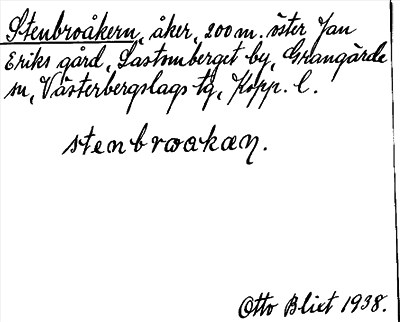 Stenbroåkern, åker, 200 m. öster Jan
Eriks gård, Laxtomberget by, Grangärde
sn, Västerbergslags tg, Kopp. l.
stenbroakaṇ.
Otto Blixt 1938.